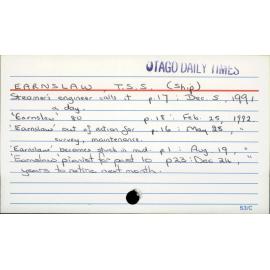 OTAGO DAILY TIMES
EARNSLAW, T.S.S. (Ship)
Steamer's engineer calls it p.17 : Dec. 5, 1991
a day.
'Earnslaw' 80 p.18 : Feb. 25, 1992
'Earnslaw' out of action for p.16 : May 25, "
survey, maintenance.
'Earnslaw' becomes stuck in mud. p.1 : Aug 19, "
'Earnslaw' pianist for past 10 p23 : Dec 24, "
years to retire next month.
53/C